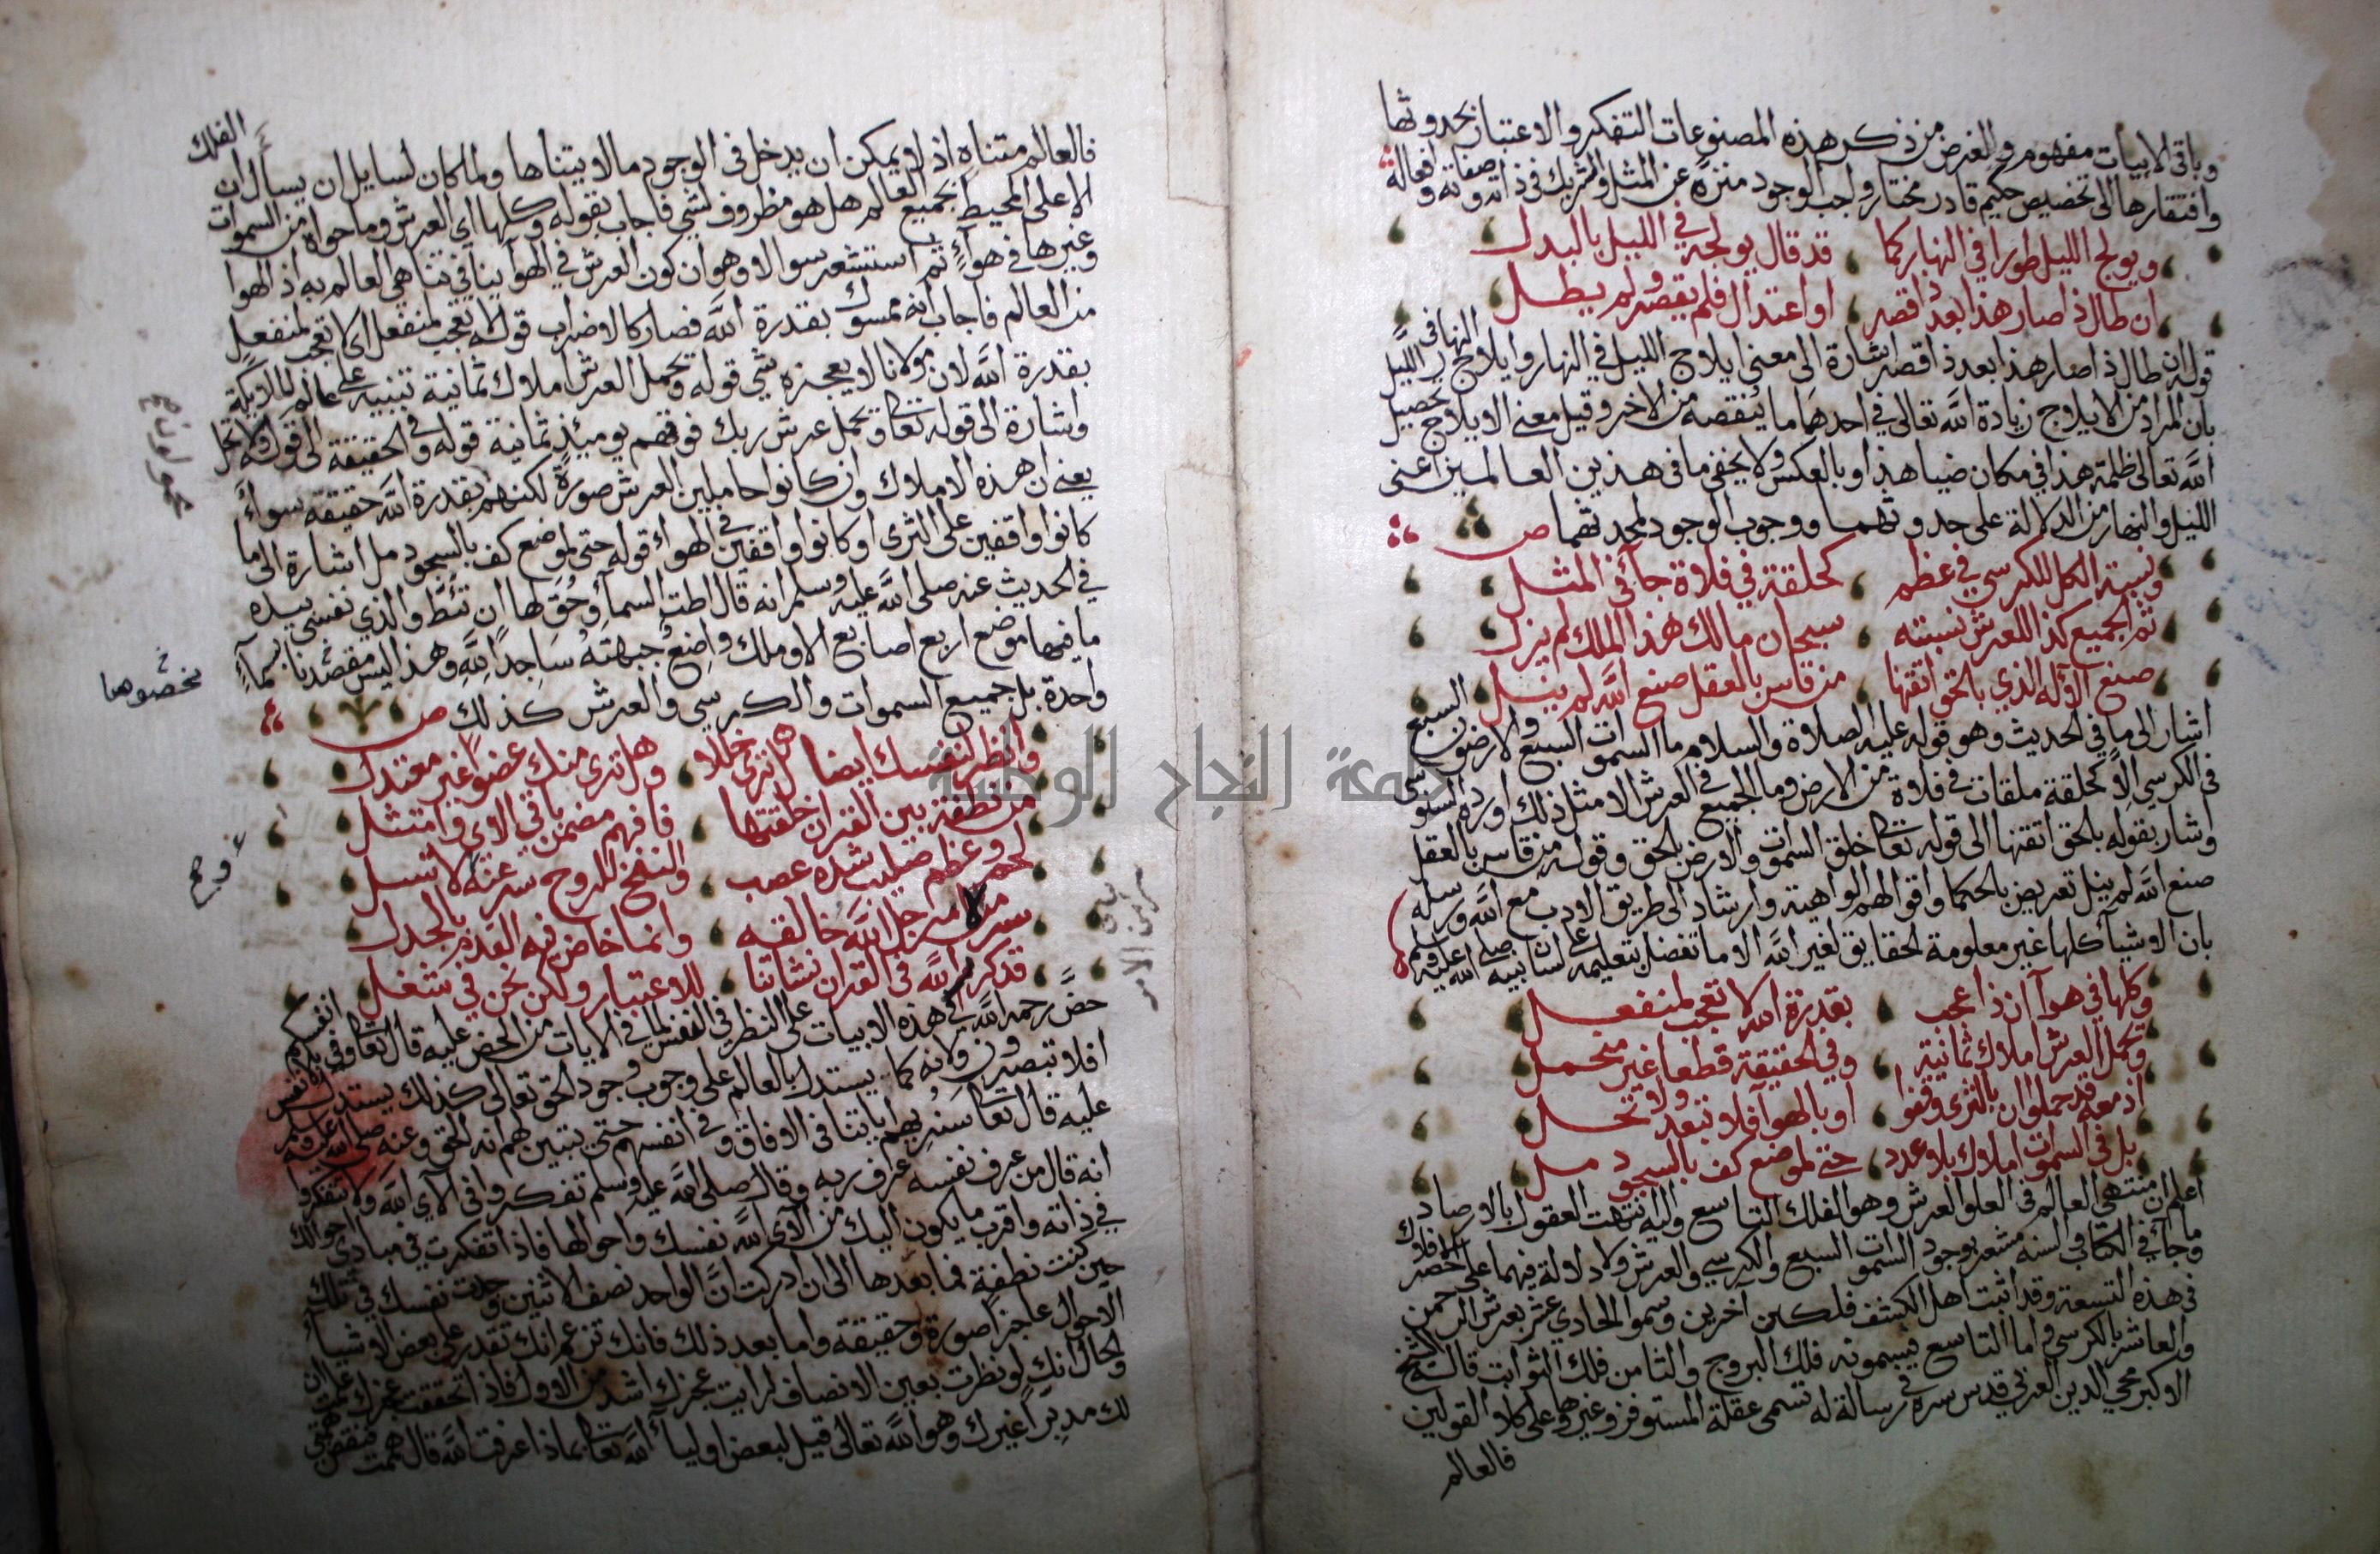 وباقي الابيات مفهوم والغرض من ذكر هذه المصنوعات التفكر والاعتبار بحدوثها
وافتقارها الى تخصيص حكيم قادر مختار واجب الوجود منزه عن المثل والشريك في ذاته وصفاته وافعاله
ويولج الليل طورا في النهار كما قد قال يولجه في الليل بالبدل
ان طال ذا صار هذا بعد ذا قصر او اعتدال فلم يقصر ولم يطل
قوله ان طال ذا صار هذا بعد ذا قصر اشارة الى معنى ايلاج الليل في النهار وايلاج النهار في الليل
بان المراد من الايلاج زيادة الله تعالى في احدهما ما ينقصه من الاخر وقيل معنى الايلاج تحصيل
الله تعالى ظلمة هذا في مكان ضيا هذا وبالعكس ولا يخفى ما في هذين العالمين اعني
الليل والنهار من الدلالة على حدوثهما ووجوب الوجود لمحدثهما ص
ونسبة الكل للكرسي في عظم كحلقة في فلاة جاء في المثل
ثم الجميع كذا للعرش نسبته سبحان مالك هذا الملك لم يزل
صنع الاله الذي بالحق اتقنها من قاس بالعقل صنع الله لم ينل
اشار الى ما في الحديث وهو قوله عليه الصلاة والسلام ما السموات السبع والارضون السبع
في الكرسي الا كحلقة ملقات في فلاة من الارض وما الجميع في العرش الا مثل ذلك اورده السنوسي
واشار بقوله بالحق اتقنها الى قوله تعالى خلق السموات والارض بالحق وقوله من قاس بالعقل
صنع الله لم ينل تعريض بالحكما واقوالهم الواهية وارشاد الى طريق الادب مع الله ورسله
بان الاشيآء كلها غير معلومة الحقايق لغير الله الا ما تفضل بتعليمه على لسان نبيه صلى الله عليه وسلم
وكلها في هوآ ان ذا عجب بقدرة الله لا تعجب لمنفعل
وتحمل العرش املاك ثمانية وفي الحقيقة قطعا غير متحمل
اذ معه قد حملوا ان بالثرى وقفوا او بالهوا فلا تبعد ولا تحل
بل في السموات املاك بلا عدد حتى لموضع كف بالسجود مل
اعلم ان منتهى العالم في العلو العرش وهو الفلك التاسع واليه انتهت العقول بالارصاد
وما جآء في الكتاب والسنه مشعر بوجود السموات السبع والكرسي والعرش ولا دلالة فيهما على حصر الافلاك
في هذه التسعة وقد اثبت اهل الكشف فلكين آخرين وسموا الحادي عشر بعرش الرحمن
والعاشر بالكرسي واما التاسع فيسمونه فلك البروج والثامن فلك الثوابت قال الشيخ
الاكبر محيي الدين العربي قدس سره في رسالة له تسمى عقلة المستوفز وغيرها وعلى كلا القولين
فالعالم
فالعالم متناه اذ لا يمكن ان يدخل في الوجود ما لا يتناها ولما كان لسايل ان يسأل ان الفلك
الاعلى المحيط بجميع العالم هل هو مظروف لشي فاجاب بقوله وكلها اي العرش وما حواه من السموات
وغيرها في هوآء ثم استشعر سوالا وهو ان كون العرش في الهوا ينافي تناهي العالم به اذ الهوا
من العالم فاجاب انه ممسوك بقدرة الله فصار كالاضراب قوله لا تعجب لمنفعل اي لا تعجب لمنفعل
بقدرة الله لان مولانا لا يعجزه شي قوله وتحمل العرش املاك ثمانية تنبيه على عالم الملائكة
واشارة الى قوله تعالى ويحمل عرش ربك فوقهم يومئذ ثمانية قوله وفي الحقيقة الى قوله ولا تحل
يعني ان هذه الاملاك وان كانوا حاملين العرش صورة لكنهم بقدرة الله حقيقة سواء
كانوا واقفين على الثرى او كانوا واقفين في الهواء قوله حتى لموضع كف بالسجود مل اشارة الى ما
في الحديث عنه صلى الله عليه وسلم انه قال اطت السمآء وحق لها ان تئط والذي نفسي بيده
ما فيها موضع اربع اصابع الا وملك واضع جبهته ساجدا لله وهذا ليس مقتصرنا بسمآء
واحدة بل جميع السموات والكرسي والعرش كذلك ص
وانظر لنفسك ايضا هل ترى خللا وهل ترى منك عضوا غير معتدل
من نطفة بين الفران خلقتها فافهم مضمن باقي الآي وامتثل
لحم وعظم صليب شده عصب والنفخ للروح سر عنه لا تسل
سر من امر جل الله خالقه وانما خاض فيه القدم بالجدل
قد كرر الله في القران نشاتنا للاعتبار ولكن نحن في شغل
حض رحمه الله في هذه الابيات على النظر في النفس لما في الايات من الحض عليه قال تعالى وفي انفسكم
افلا تبصرون ولانه كما يستدل بالعالم على وجوب وجود الحق تعالى كذلك يستدل بالانفس
عليه قال تعالى سنريهم اياتنا في الافاق وفي انفسهم حتى يتبين لهم انه الحق وعنه صلى الله عليه وسلم
انه قال من عرف نفسه عرف ربه وقال صلى الله عليه وسلم تفكروا في الآي الله ولا تتفكروا
في ذاته واقرب ما يكون اليك من الآي الله نفسك واحوالها فاذا تفكرت في مبادي احوالك
حين كنت نطفة فما بعدها الى ان ادركت ان الواحد نصف الاثنين وجدت نفسك في تلك
الاحوال عاجزا صورة وحقيقة واما بعد ذلك فانك تزعم انك تقدر على بعض الاشيآء
والحال انك لو نظرت بعين الانصاف لرايت عجزك اشد من الاول فاذا تحققت عجزك علمت ان
لك مدبرا غيرك وهو الله تعالى قيل لبعض اوليآء الله تعالى بماذا عرفت الله قال هممت فنقض همتي
جامعة النجاح الوطنية